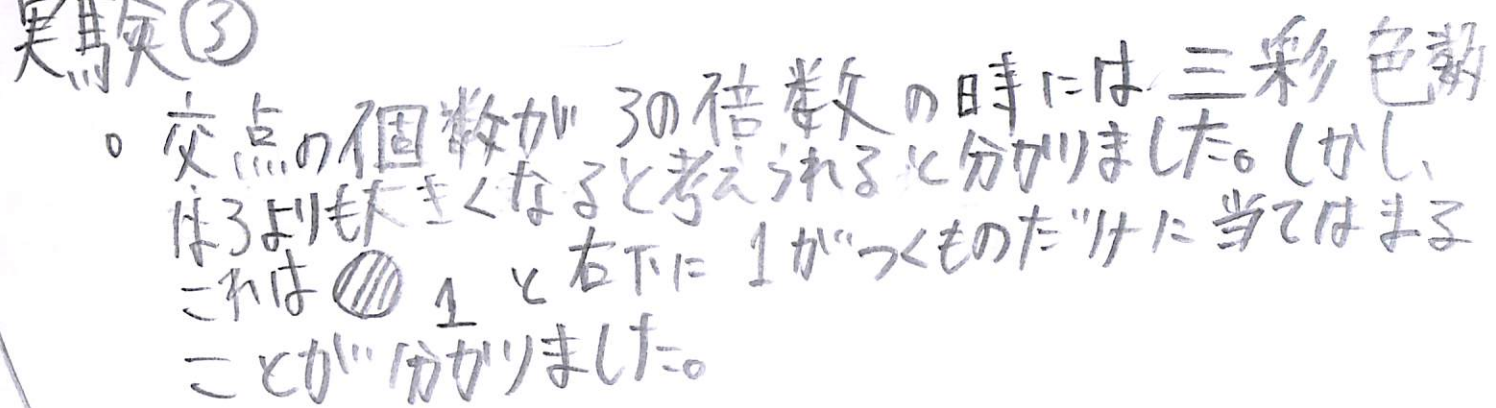 実験③
。交点の個数が3の倍数の時には三彩色数
は3よりも大きくなると考えられると分かりました。しかし、
これは 1 と右下に1がつくものだけに当てはまる
ことが分かりました。